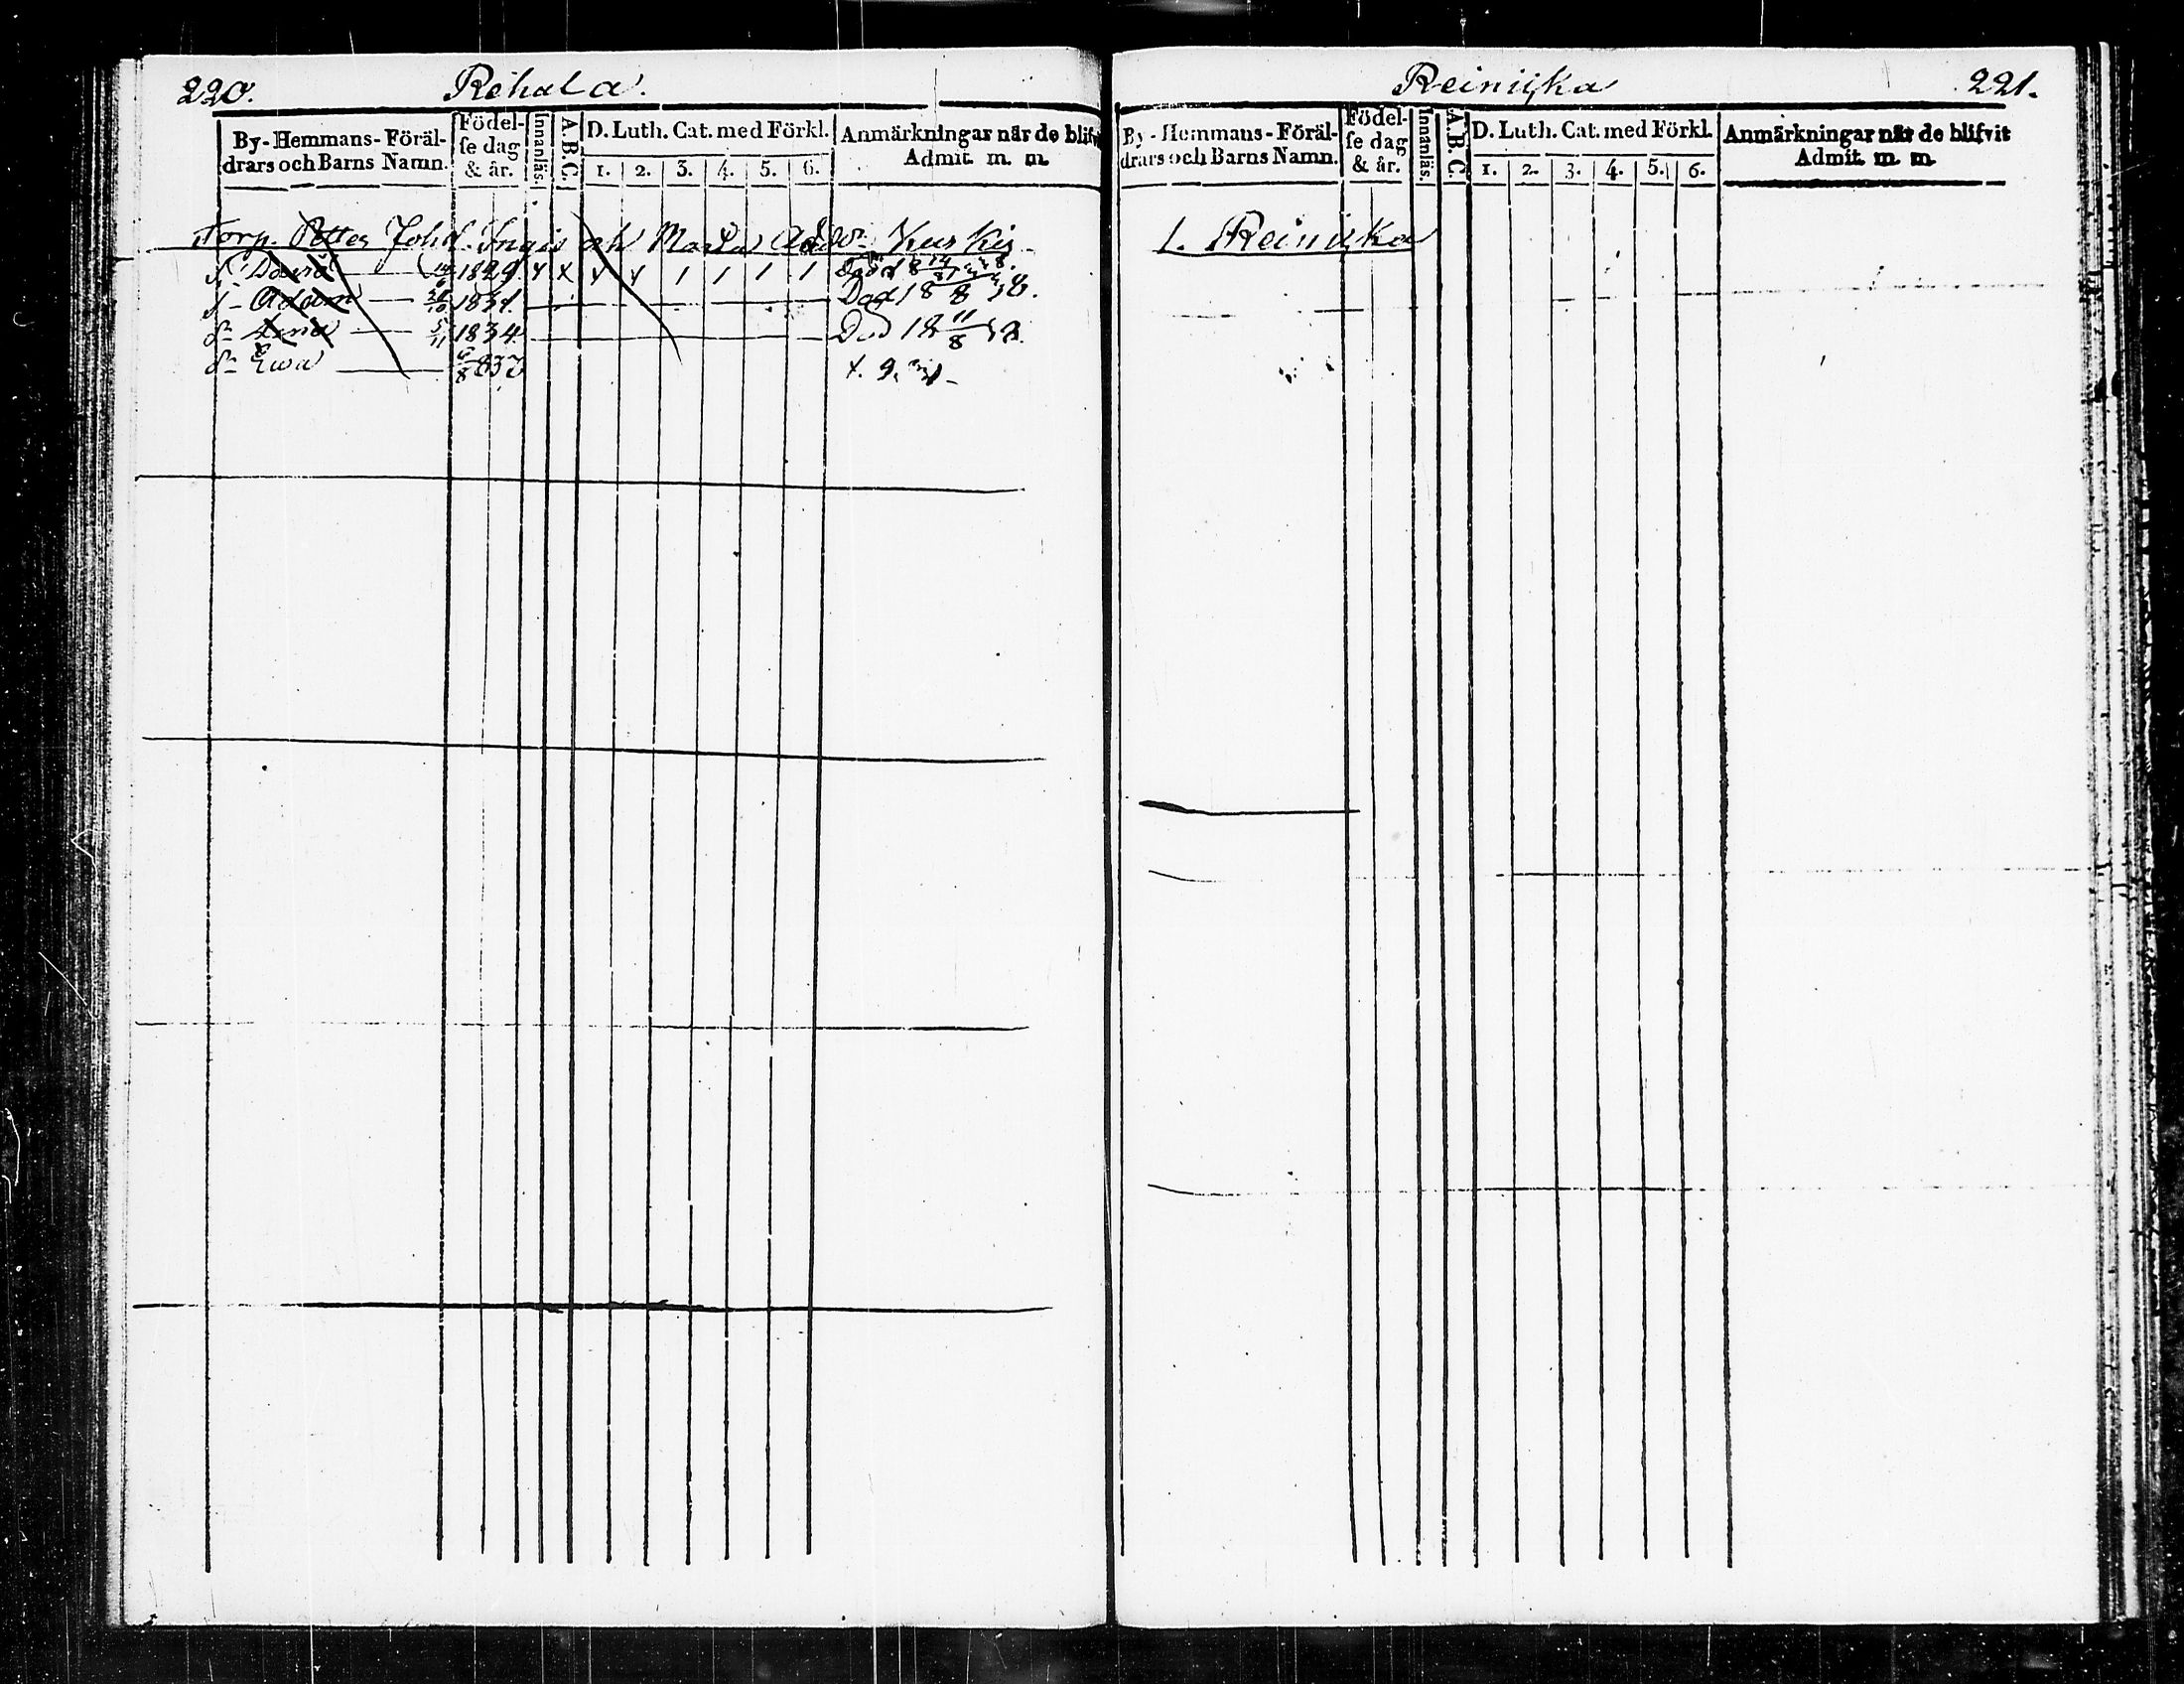 220. Rehala.
By-Hemmans-Föräl-
drars och Barns Namn.
Födel-
se dag
& år.
Innanläs.
A.B.C.
D. Luth. Cat. med Förkl.
1. 2. 3. 4. 5. 6.
Anmärkningar når de blifv
Admit. m. m.
Torp. Petter Joh. d. Ingis och Maria Kurkis
S. David 1829. x x x x 1 1 1 1 Död 18
S- Adam 1831. Död 18
d- Lena 5/11 1834 Död 18 11/8
d- Ewa 6/8 837 +. 9.
Reinickka 221.
By-Hemmans-Föräl-
drars och Barns Namn.
Födel-
se dag
& år.
Innanläs.
A.B.C.
D. Luth. Cat. med Förkl.
1. 2. 3. 4. 5. 6.
Anmärkningar når de blifvit
Admit. m. m.
1. Reinickka